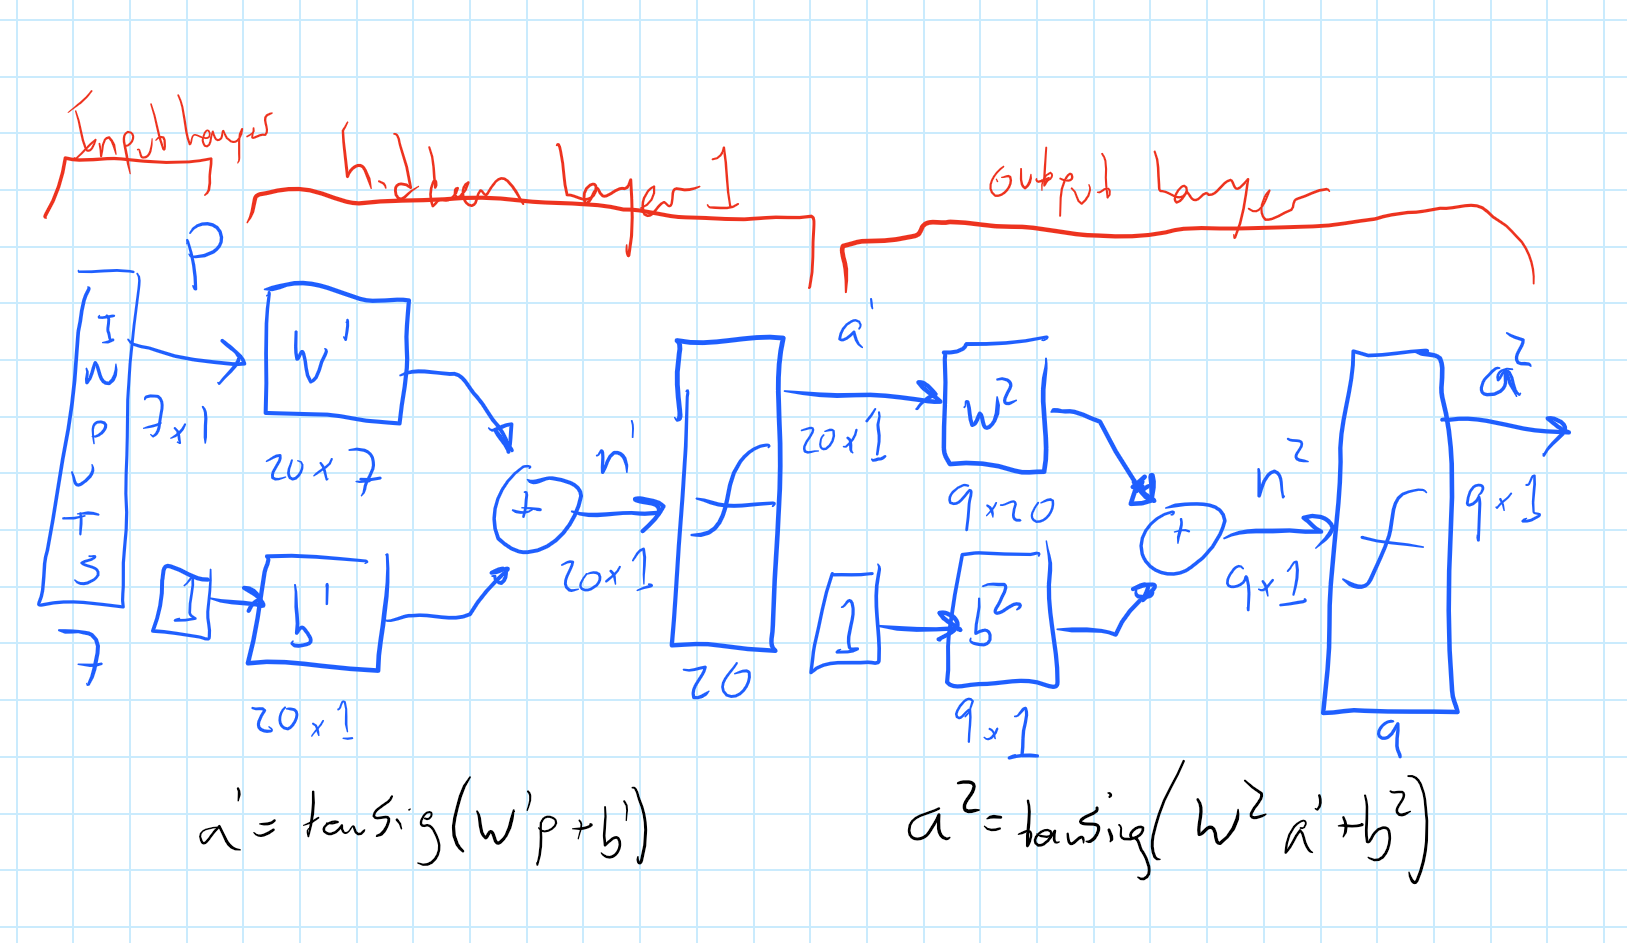 Input Layer
hidden Layer 1
output Layer
P
INPUTS
7x1
7
W¹
20x7
1
b¹
20x1
+
n¹
20x1
20
a¹
20x1
W²
9x20
1
b²
9x1
+
n²
9x1
9
a²
9x1
a¹ = tansig(W¹p+b¹)
a² = tansig(W² a¹+b²)